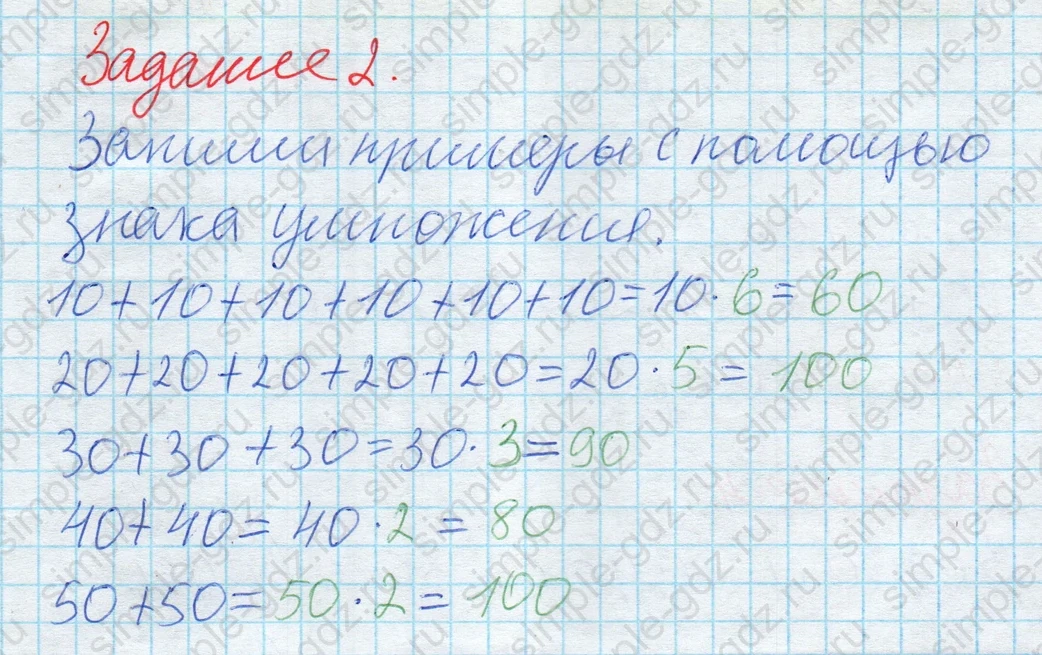 Задание 2.
Запиши примеры с помощью
знака умножения.
10+10+10+10+10+10=10·6=60
20+20+20+20+20=20·5=100
30+30+30=30·3=90
40+40=40·2=80
50+50=50·2=100
simple-gdz.ru